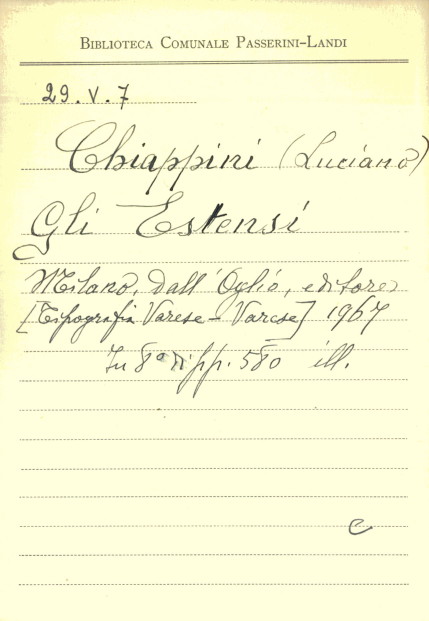 BIBLIOTECA COMUNALE PASSERINI-LANDI
29. V. 7
Chiappini (Luciano)
Gli Estensi
Milano, dall'Oglio, editore
[Tipografia Varese - Varese] 1967
In 8° di pp. 580 ill.
e